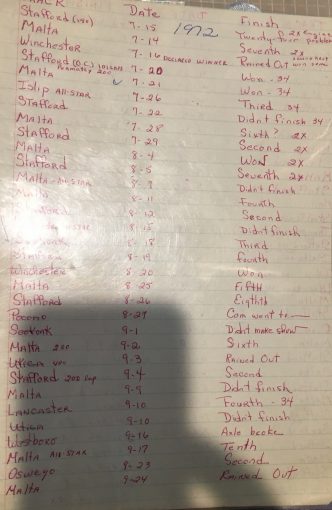 Date Finish
Stafford 7-15
1972
Malta 7-14 Twenty-four
Winchester 7-16 Seventh 2x
Stafford 7-20 Rained Out
DECLARED WINNER
Malta 200 7-21 Won - 34
Islip ALL-STAR 7-26 Won - 34
Stafford 7-22 Third - 34
Malta 7-28 Didn't finish 34
Stafford 7-29 Sixth? 2X
Malta 8-4 Second 2X
Stafford 8-5 Won 2X
Malta - ALL-STAR 8-9 Seventh 2X
Malta 8-11 Didn't finish
8-12 Fourth
8-15 Second
8-18 Didn't finish
8-19 Third
Winchester 8-20 Fourth
Malta 8-25 Won
Stafford 8-26 Fifth
Pocono 8-27 Eighth
Seekonk 9-1 Cam went
Malta 200 9-2 Didn't make show
Utica 9-3 Sixth
Stafford 200 lap 9-4 Rained Out
Malta 9-9 Second
Lancaster 9-10 Didn't finish
Utica 9-10 Fourth - 34
Westboro 9-16 Didn't finish
Malta ALL STAR 9-17 Axle broke
Oswego 9-23 Tenth
Malta 9-24 Second
Rained Out